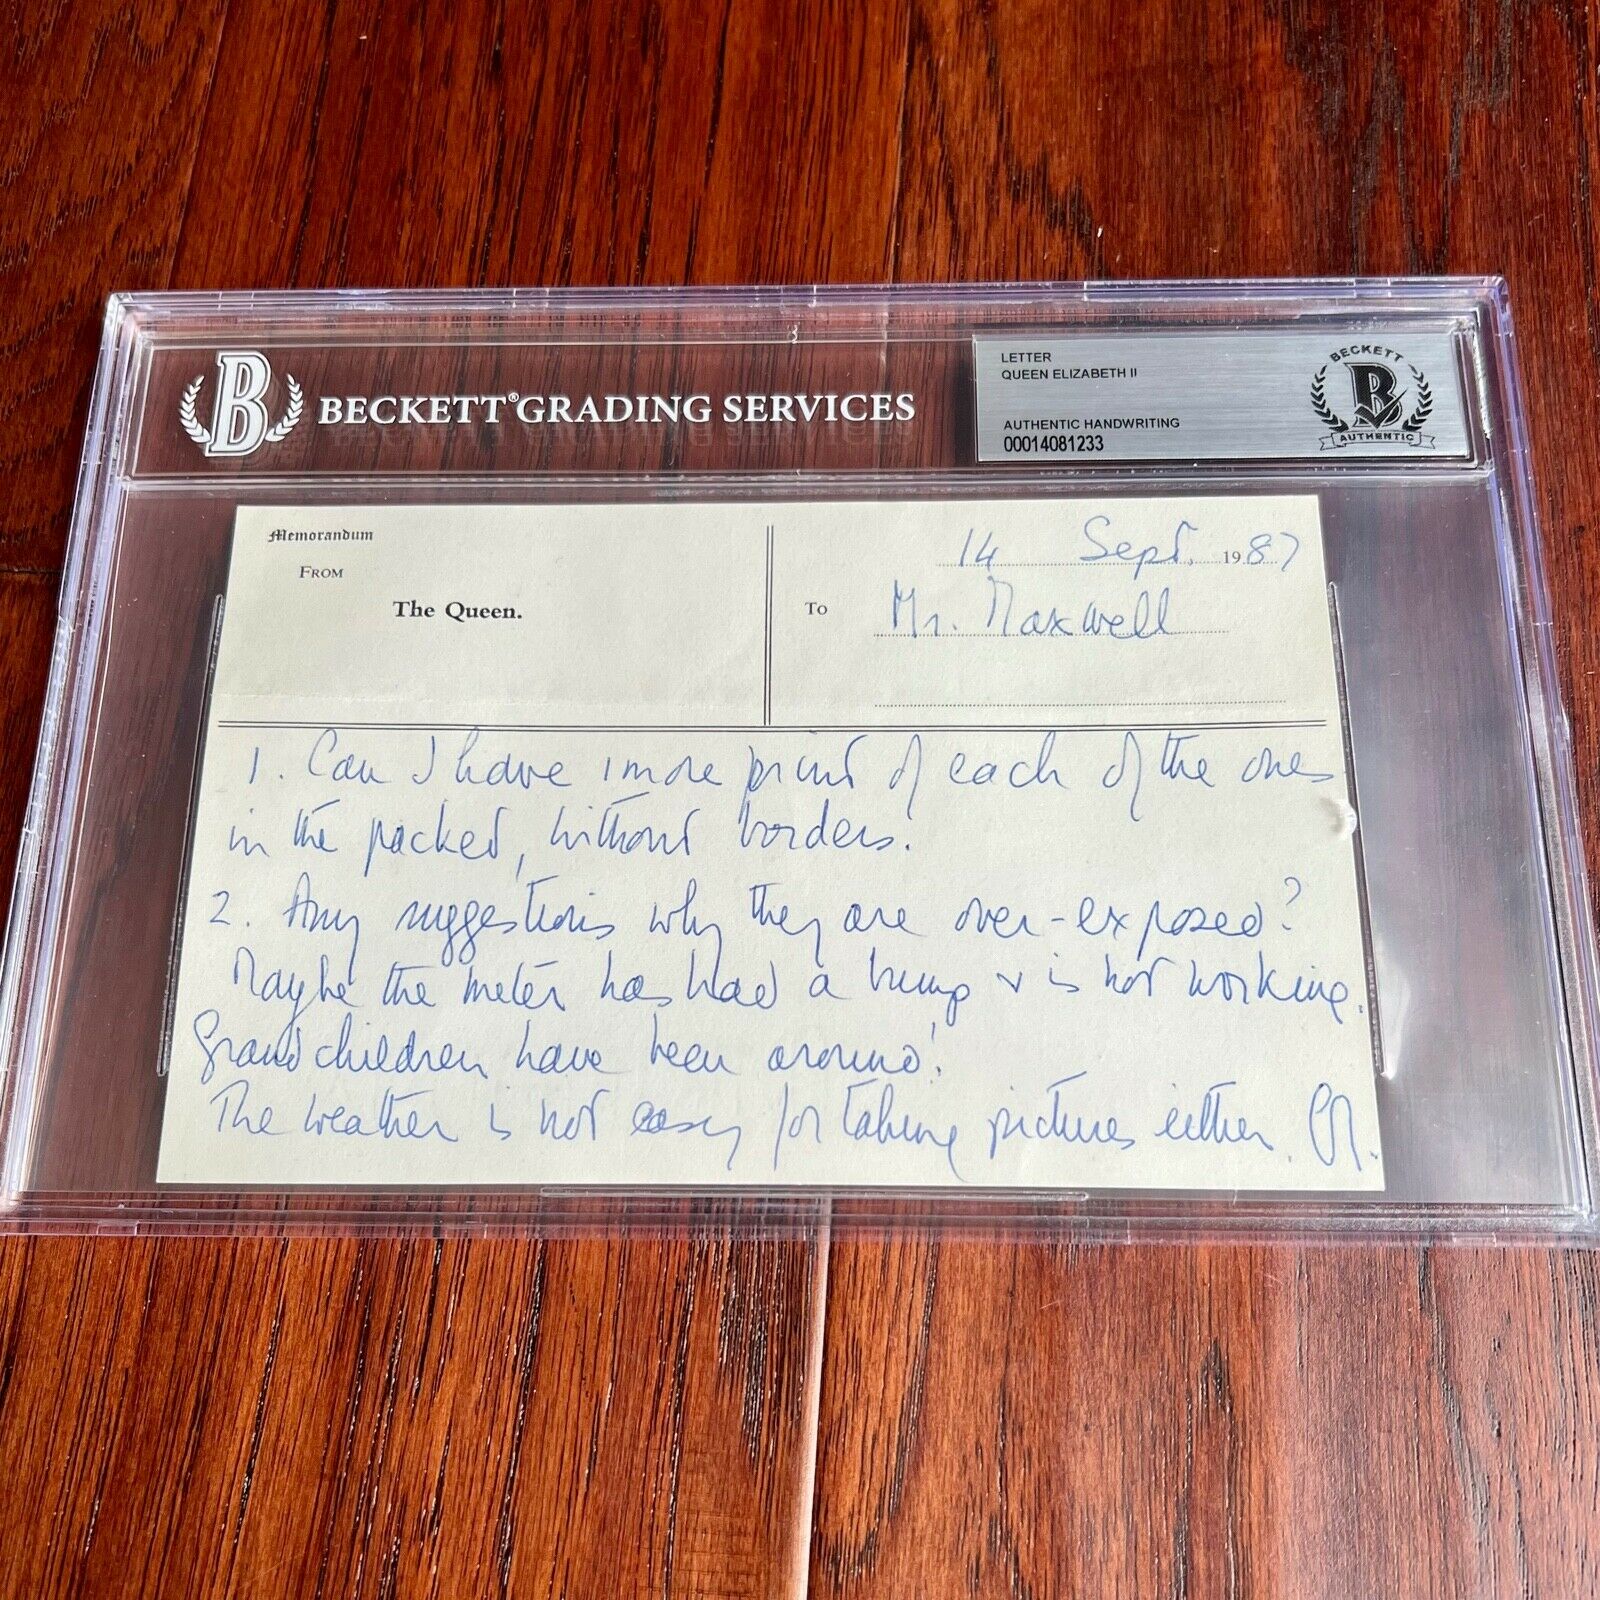 B BECKETT® GRADING SERVICES
LETTER
QUEEN ELIZABETH II
AUTHENTIC HANDWRITING
00014081233
BECKETT
B
AUTHENTIC
Memorandum
FROM
The Queen.
14 Sept. 1987
TO Mr. Maxwell
1. Can I have 1 more print of each of the ones
in the packet, without borders!
2. Any suggestions why they are over-exposed?
Maybe the meter has had a bump & is not working.
Grandchildren have been around!
The weather is not easy for taking pictures either.